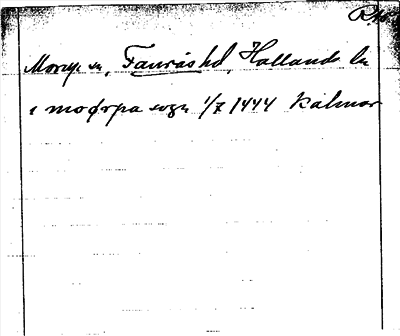 Morup sn, Faurås hd, Hallands län
i moørpa sogn 1/7 1444 Kalmar